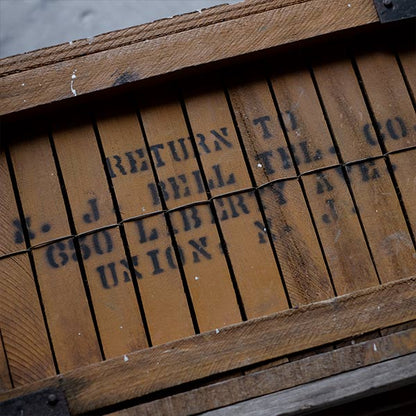 RETURN TO
N. J. BELL TEL. CO.
650 LIBERTY AVE.
UNION. N. J.